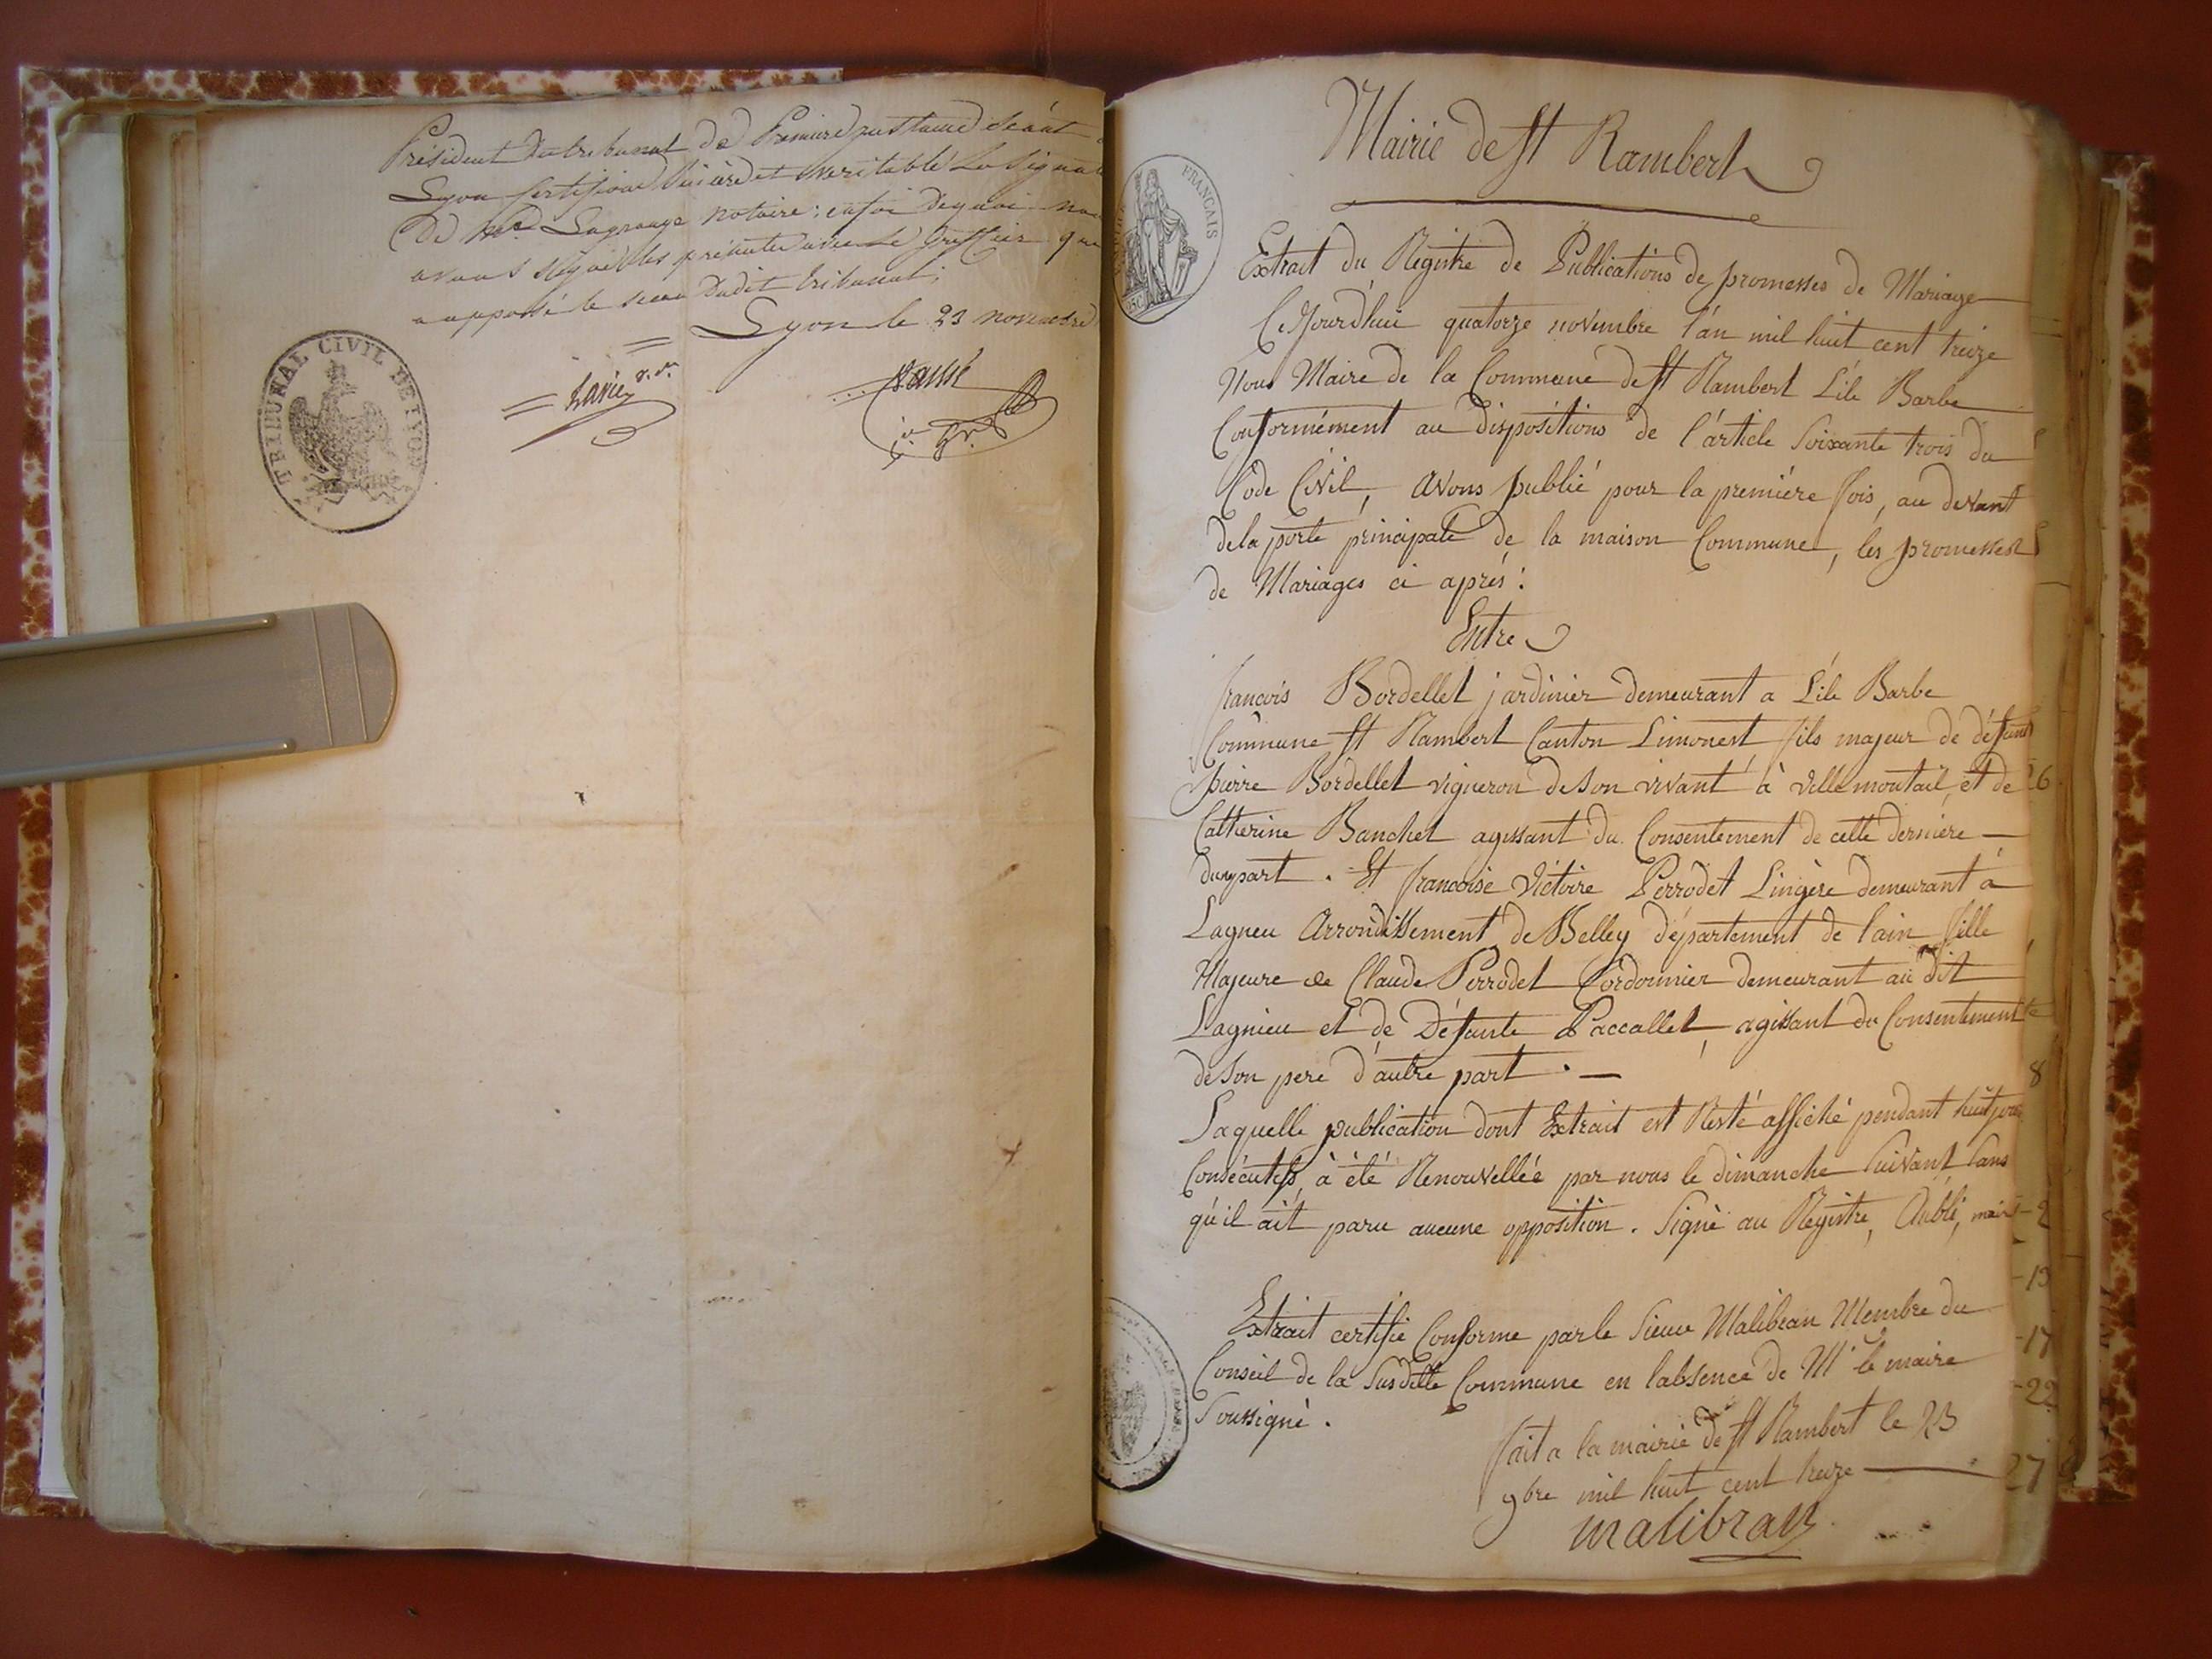 Président du tribunal de Premiere instance séant
Lyon certifions sincère et veritable La Signat
De Me Lagrange notaire; en foi de quoi no
avons signé les présentes avec Le Greffier qu
a apposé le sceau dudit tribunal;
Lyon le 23 novembre
TRIBUNAL CIVIL DE LYON
Mairie de st Rambert
FRANÇAIS
Extrait du Registre de Publications de promesses de Mariage
Cejourd'hui quatorze novembre l'an mil huit cent treize
Nous Maire de la Commune de st Rambert L'ile Barbe
Conformément au dispositions de l'article Soixante trois du
Code Civil, avons publié pour la première fois, au devant
de la porte principale de la maison Commune, les promesses
de Mariages ci après:
Entre
francois Bordellet jardinier demeurant a L'ile Barbe
Commune st Rambert Canton Limonest fils majeur de défunt
pierre Bordellet vigneron de son vivant à villemontail, et de
Catherine Banchet agissant du Consentement de cette dernière
dunepart. Et francoise Victoire Perrodet Lingère demeurant à
Lagneu Arrondissement de Belley département de l'ain fille
Majeure de Claude Perrodet Cordonnier demeurant au dit
Lagnieu et de Défunte Paccallet, agissant du Consentement
de Son pere d'autre part. —
Laquelle publication dont Extrait est Resté affiché pendant huit jours
Consécutifs, à été Renouvellée par nous le dimanche Suivant Sans
qu'il ait paru aucune opposition. Signé au Registre, Aublé, maire
Extrait certifié Conforme par le Sieur Malibran Membre du
Conseil de la Susditte Commune en l'absence de Mr le maire
Soussigné.
fait a la mairie de st Rambert le 23
9bre mil huit cent treize
malibran
26
8
-2
-13
-17
-22
27